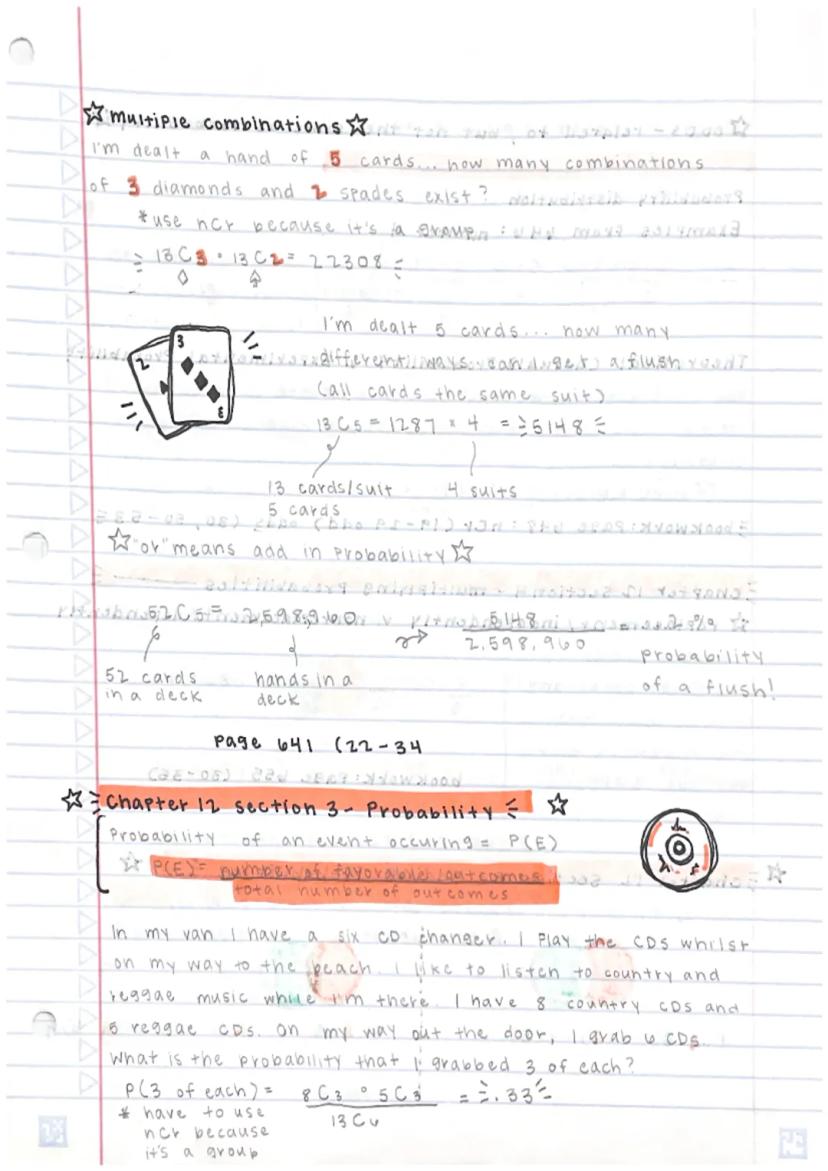 ☆ multiple combinations ☆
I'm dealt a hand of 5 cards... how many combinations
of 3 diamonds and 2 spades exist?
*use nCr because it's a group
13C3 · 13C2 = 22308
I'm dealt 5 cards... how many
different ways can I get a flush
(all cards the same suit)
13C5 = 1287 × 4 = 5148
13 cards/suit 4 suits
5 cards
2
3
3
☆ "or" means add in probability ☆
52C5 = 2,598,960 5148
2,598,960
52 cards
in a deck
hands in a
deck
probability
of a flush!
Page 641 (22-34
☆ Chapter 12 section 3 - Probability ☆
Probability of an event occuring = P(E)
☆ P(E) = number of favorable outcomes
total number of outcomes
In my van I have a six CD changer. I play the CDs whilst
on my way to the beach. I like to listen to country and
reggae music while I'm there. I have 8 country CDs and
5 reggae CDs. On my way out the door, I grab 6 CDs.
What is the probability that I grabbed 3 of each?
P(3 of each) = 8C3 ° 5C3 = .33
13C6
* have to use
nCr because
it's a group